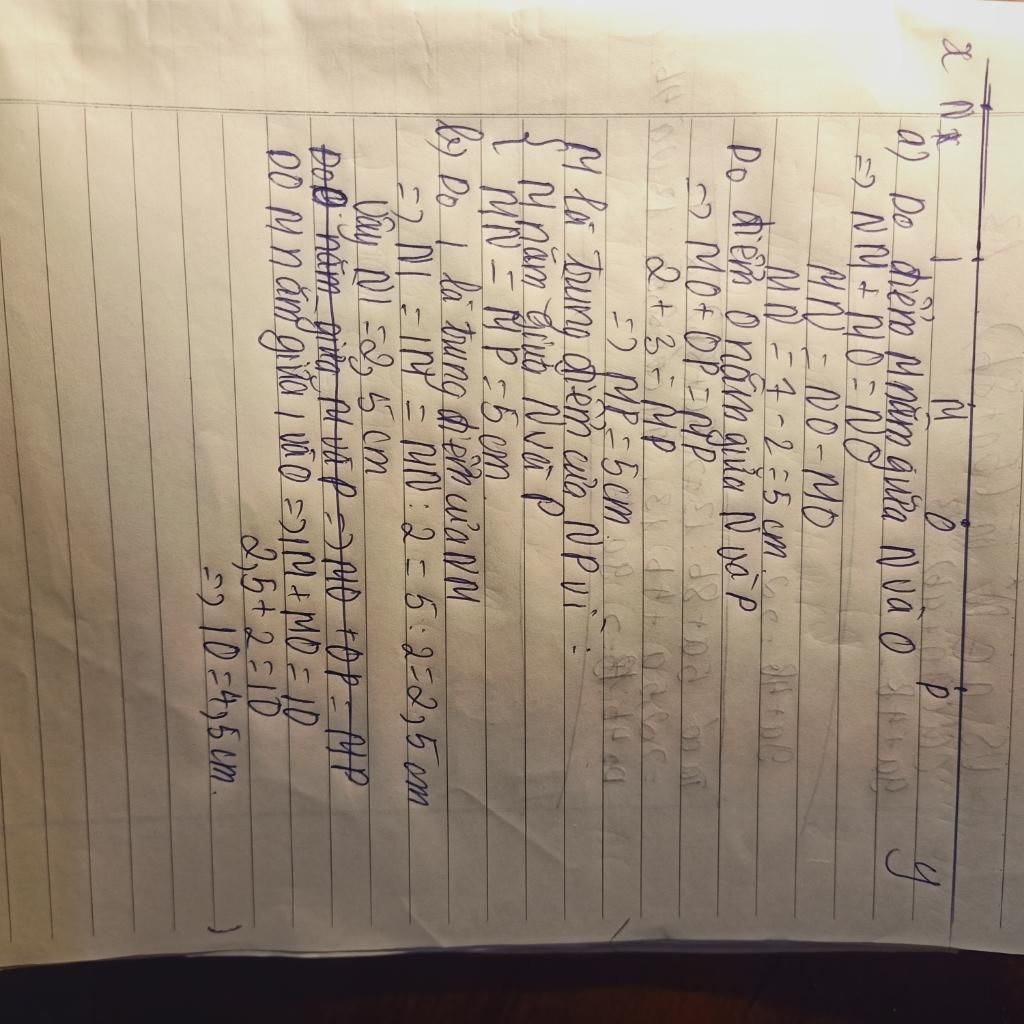 x N I M O P y
a) Do điểm M nằm giữa N và O
=> NM + MO = NO
MN = NO - MO
MN = 7 - 2 = 5 cm
Do điểm O nằm giữa N và P
=> MO + OP = MP
2 + 3 = MP
=> MP = 5cm
M là trung điểm của NP vì :
{ M nằm giữa N và P
MN = MP = 5cm
b) Do I là trung điểm của NM
=> NI = IM = MN : 2 = 5 : 2 = 2,5 cm
Vậy NI = 2,5 cm
Do O nằm giữa M và P => MO + OP = MP
DO M nằm giữa I và O => IM + MO = IO
2,5 + 2 = IO
=> IO = 4,5 cm.